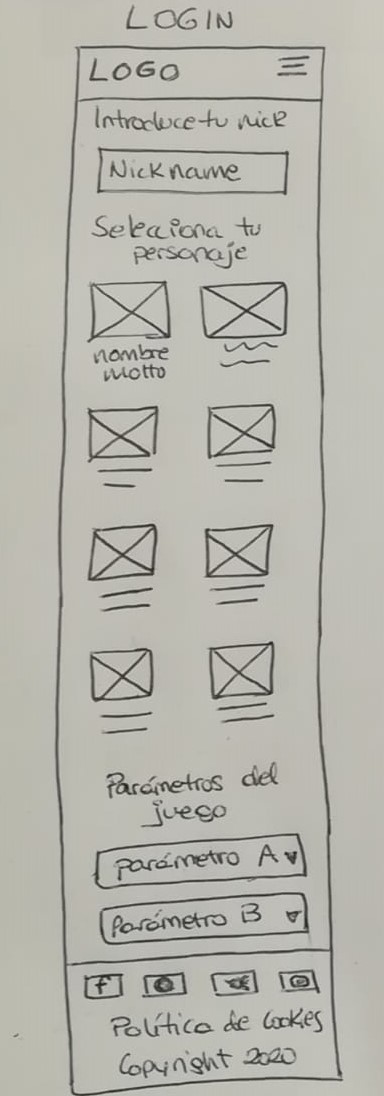 LOGIN
LOGO
Introduce tu nick
Nickname
Selecciona tu
personaje
nombre
motto
Parámetros del
juego
parámetro A
Parámetro B
f
Política de Cookies
Copyright 2020